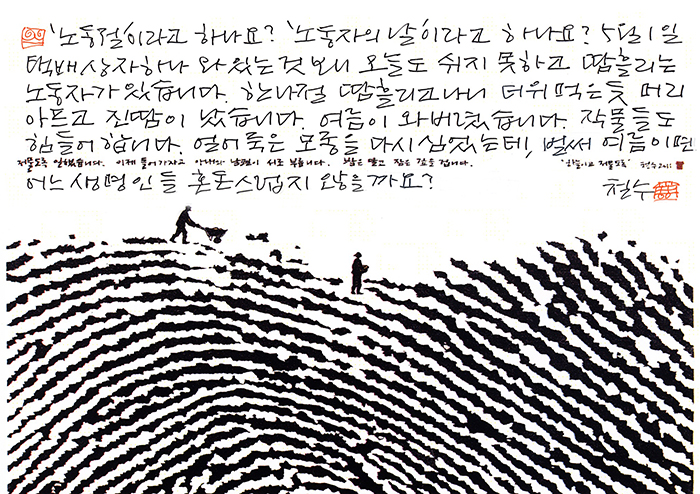 '노동절'이라고 하나요? '노동자의 날'이라고 하나요? 5월 1일
택배상자하나 와있는것 보니 오늘도 쉬지 못하고 땀흘리는
노동자가 있습니다. 한나절 땀흘리고나니 더위 먹은듯 머리
아프고 진땀이 났습니다. 여름이 와버렸습니다. 작물들도
힘들어 합니다. 얼어죽은 모종을 다시 심었는데, 벌써 여름이면
저물도록 일했습니다. 이제 들어가자고 아내와 남편이 서로 부릅니다. 밤은 멀고 잠은 잠을 겁니다. '하늘이고 저물도록' 철수
어느 생명인들 혼돈스럽지 않을까요?
철수